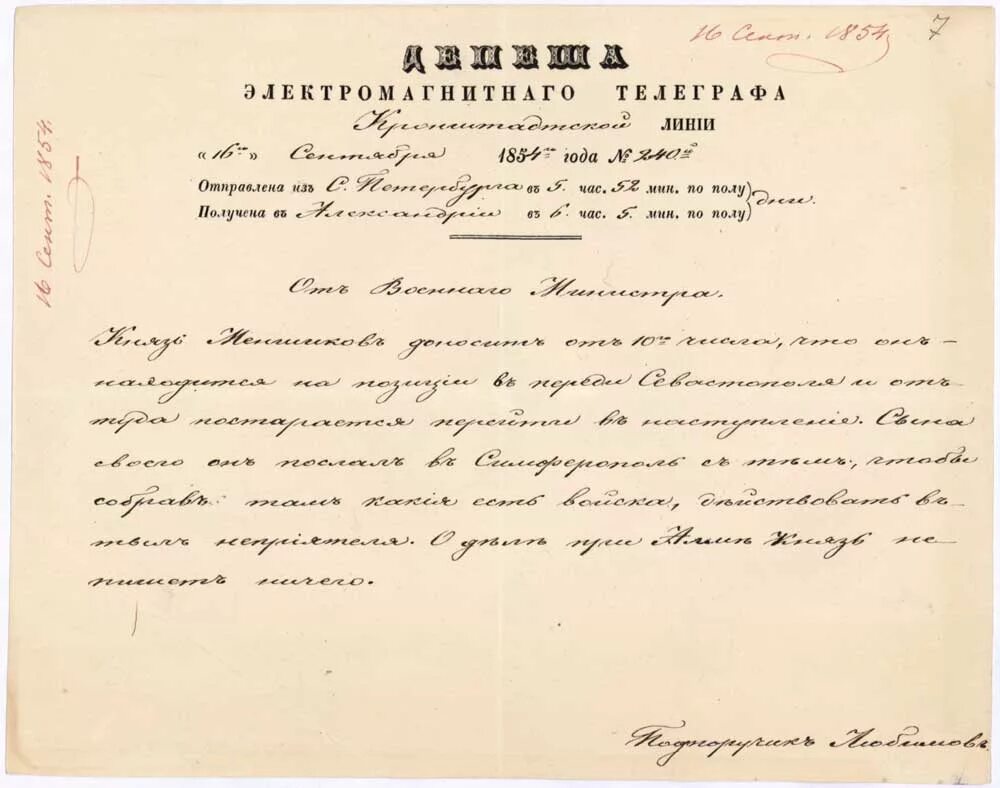 16 Сент. 1854 7
ДЕПЕША
ЭЛЕКТРОМАГНИТНАГО ТЕЛЕГРАФА
Кронштадтской ЛИНІИ
„16го” Сентября 1854го года № 240й
Отправлена изъ С. Петербурга въ 5. час. 52 мин. по полу
Получена въ Александріи въ 6. час. 5. мин. по полу } дни.
16 Сент. 1854.
Отъ Военнаго Министра.
Князь Меншиковъ доноситъ отъ 10го числа, что онъ
находится на позиціи въ переди Севастополя и отъ
туда постарается перейти въ наступленіе. Сына
своего онъ послалъ въ Симферополь съ тѣмъ, чтобы
собравъ тамъ какія есть войска, дѣйствовать въ
тылъ непріятеля. О дѣлѣ при Алмѣ Князь не
пишетъ ничего.
Подпоручикъ Любимовъ.